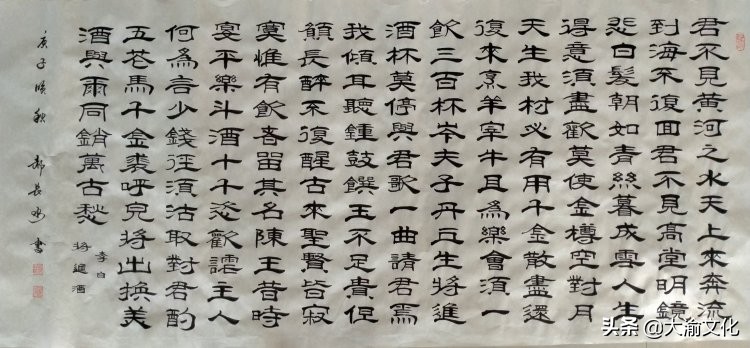 君不見黃河之水天上來奔流
到海不復回君不見高堂明鏡
悲白髮朝如青絲暮成雪人生
得意須盡歡莫使金樽空對月
天生我材必有用千金散盡還
復來烹羊宰牛且為樂會須一
飲三百杯岑夫子丹丘生將進
酒杯莫停與君歌一曲請君為
我傾耳聽鍾鼓饌玉不足貴但
願長醉不復醒古來聖賢皆寂
寞惟有飲者留其名陳王昔時
宴平樂斗酒十千恣歡謔主人
何為言少錢徑須沽取對君酌
五花馬千金裘呼兒將出換美
酒與爾同銷萬古愁
李白
將進酒
庚子 秋 郝長 書
头条 @大渝文化